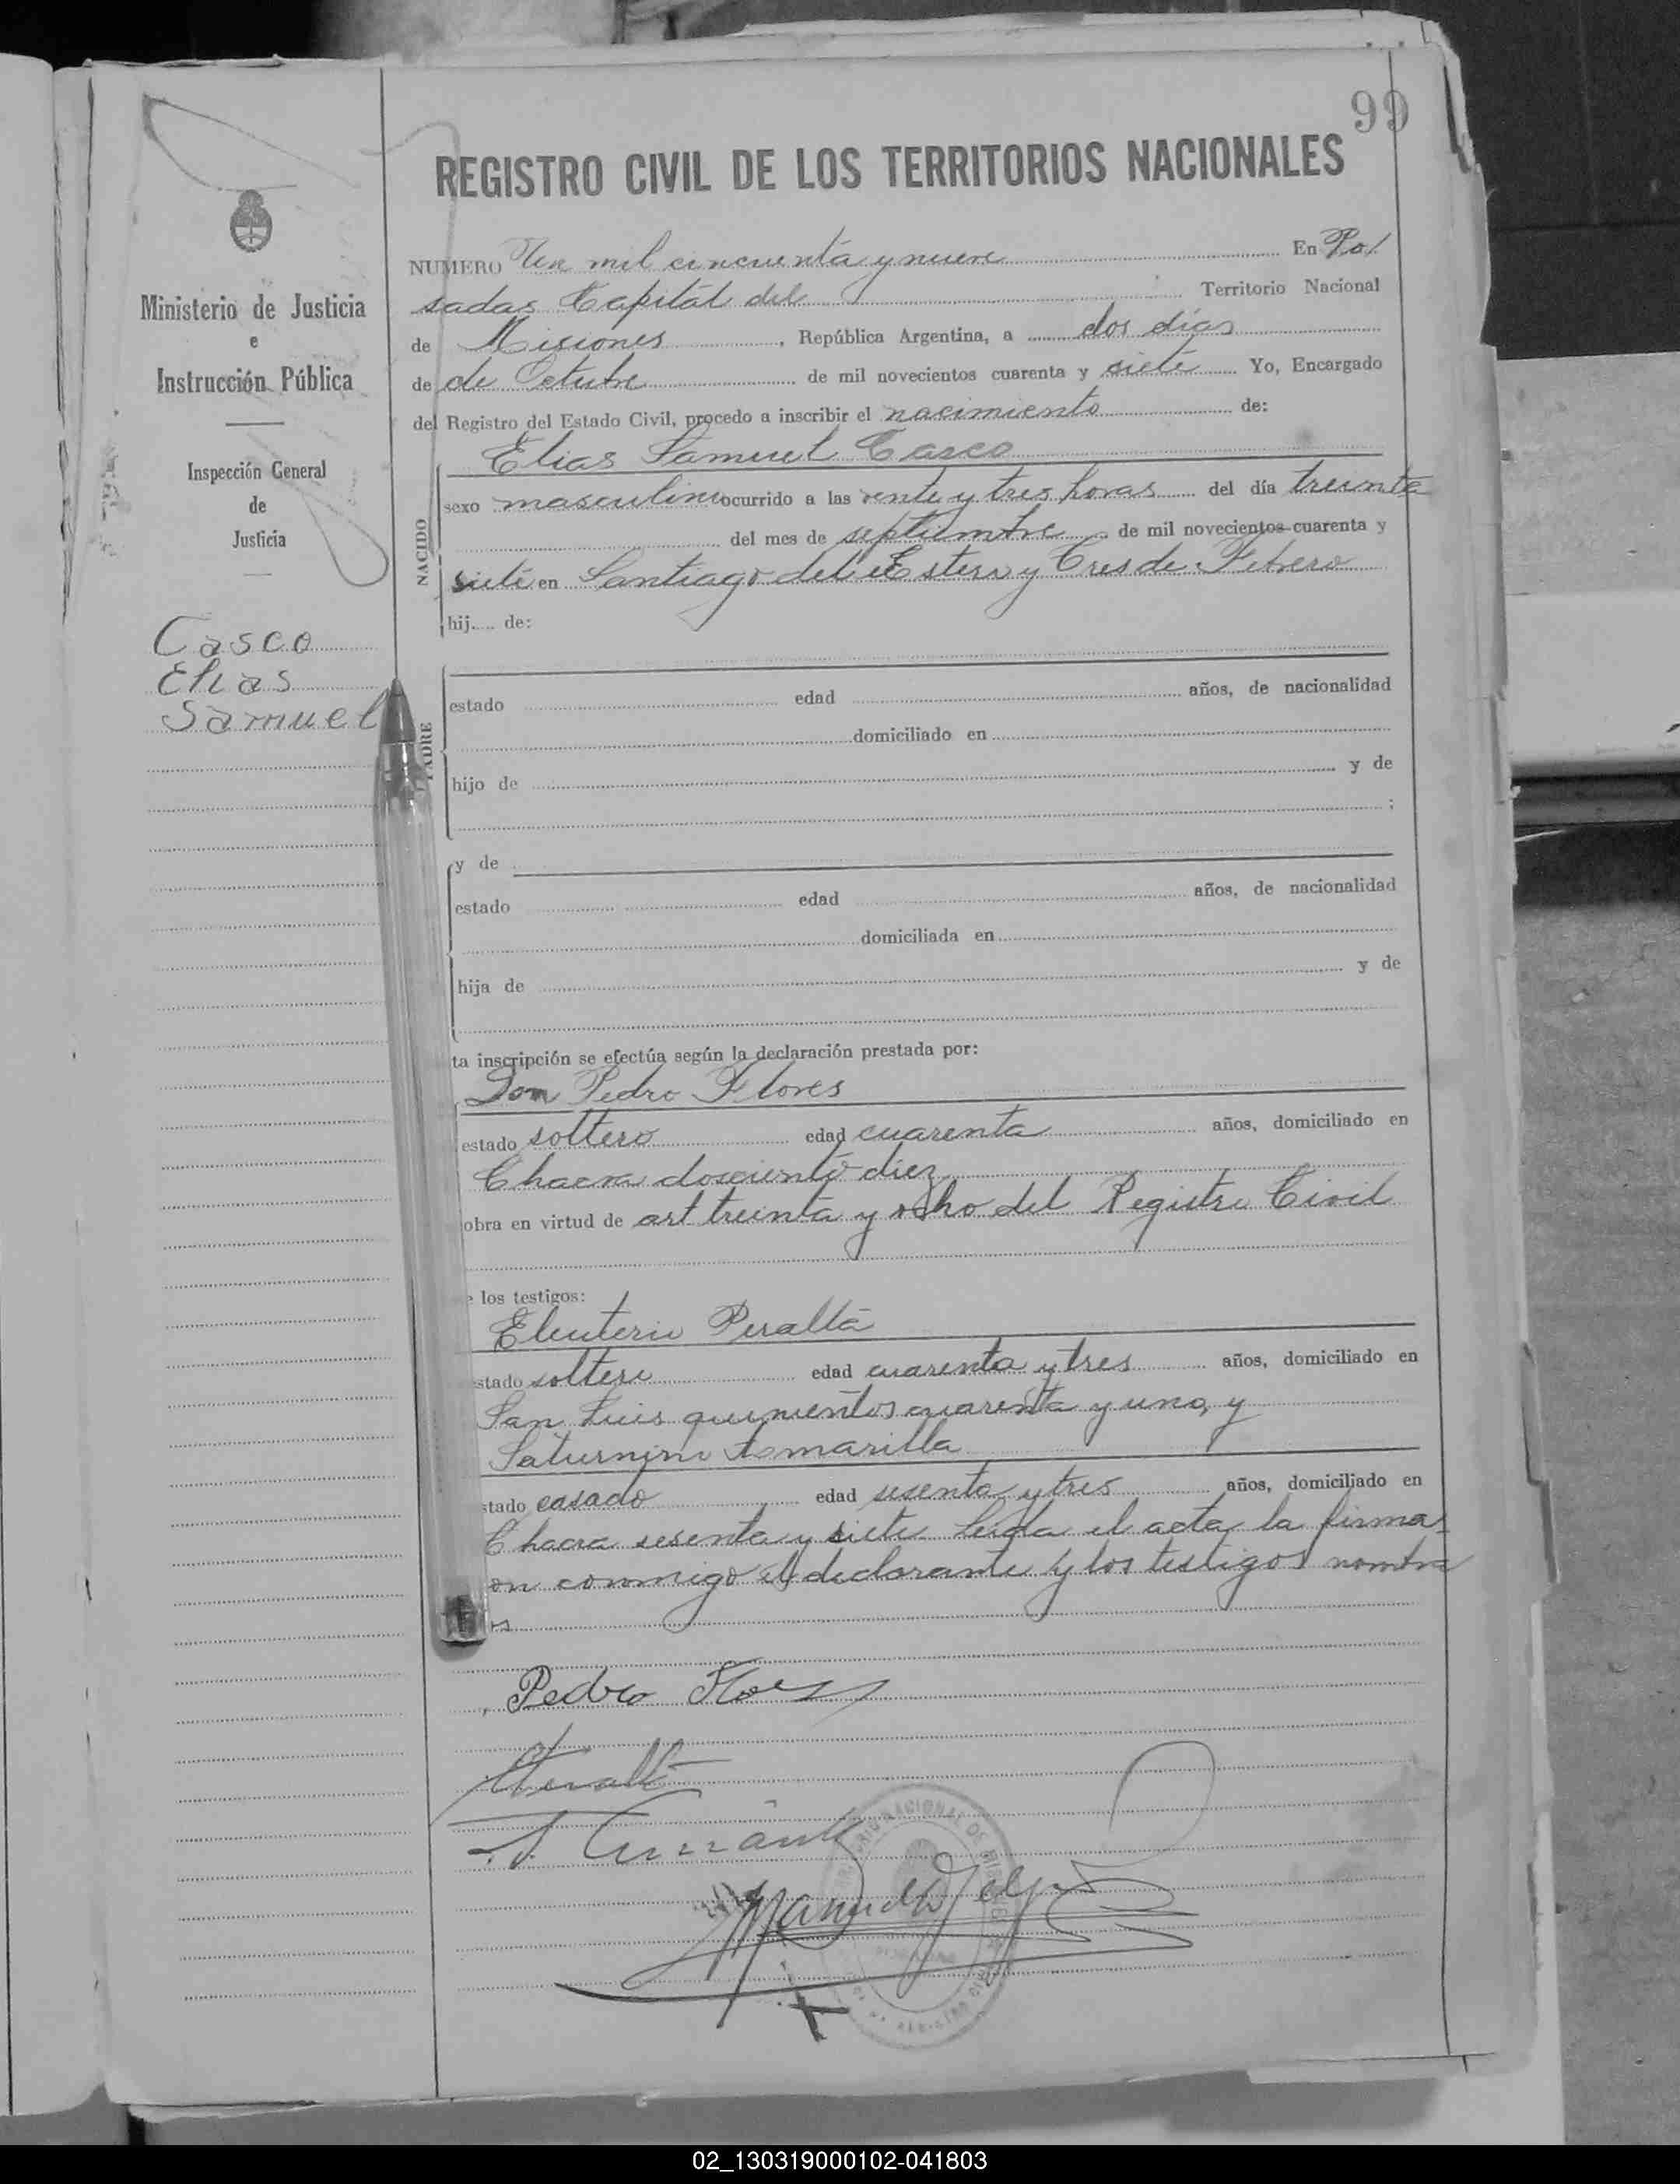 99
REGISTRO CIVIL DE LOS TERRITORIOS NACIONALES
Ministerio de Justicia
e
Instrucción Pública
Inspección General
de
Justicia
Casco
Elias
Samuel
NUMERO Un mil cincuenta y nueve En Po/
sadas Capital del Territorio Nacional
de Misiones, República Argentina, a dos dias
de de Octubre de mil novecientos cuarenta y siete Yo, Encargado
del Registro del Estado Civil, procedo a inscribir el nacimiento de:
Elias Samuel Casco
NACIDO
sexo masculino ocurrido a las vente y tres horas del día treinta
del mes de septiembre de mil novecientos cuarenta y
siete en Santiago del Estero y Tres de Febrero
hij.... de:
PADRE
estado edad años, de nacionalidad
domiciliado en
hijo de y de
;
y de
estado edad años, de nacionalidad
domiciliada en
hija de y de
ta inscripción se efectúa según la declaración prestada por:
Don Pedro Flores
estado soltero edad cuarenta años, domiciliado en
Chacra dosciento diez
obra en virtud de art treinta y ocho del Registro Civil
e los testigos:
Eleuterio Peralta
stado soltero edad cuarenta y tres años, domiciliado en
San Luis quinientos cuarenta y uno, y
Saturnino Amarilla
stado casado edad sesenta y tres años, domiciliado en
Chacra sesenta y siete Leida el acta, la firma
on conmigo el declarante y los testigos nombra
os
Pedro Flores
EPeralta
02_130319000102-041803